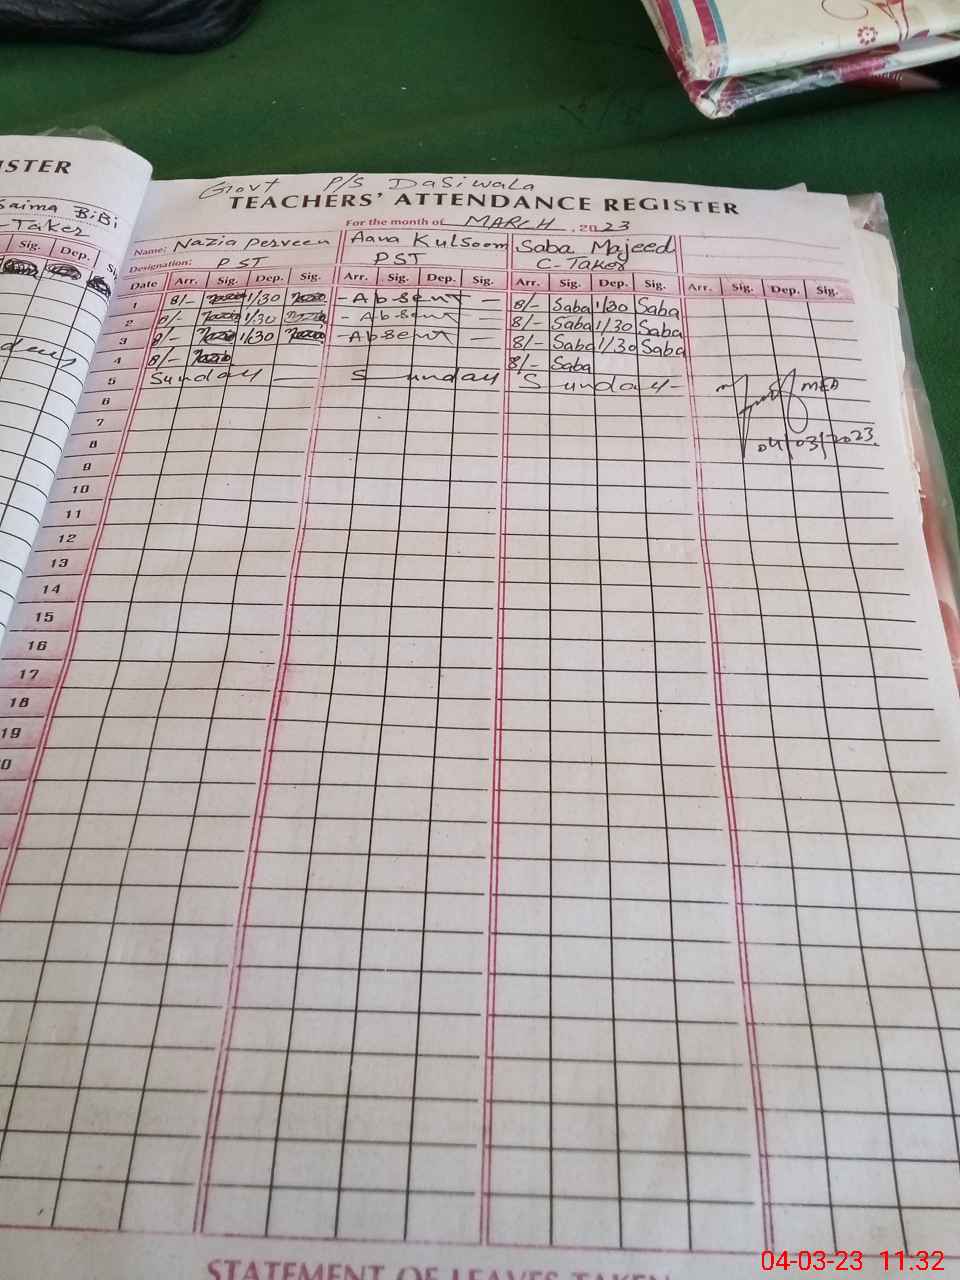 ISTER
Saima BiBi
-Taker
Sig. Dep. Sig.
Govt P/S Dasiwala
TEACHERS' ATTENDANCE REGISTER
For the month of MARCH, 2023
Name: Nazia Perveen Aana Kulsoom Saba Majeed
Designation: PST PST C-Taker
Date Arr. Sig. Dep. Sig. Arr. Sig. Dep. Sig. Arr. Sig. Dep. Sig. Arr. Sig. Dep. Sig.
1 8/- Nazia 1/30 Nazia - Absent - 8/- Saba 1/30 Saba
2 8/- Nazia 1/30 Nazia - Absent - 8/- Saba 1/30 Saba
3 8/- Nazia 1/30 Nazia - Absent - 8/- Saba 1/30 Saba
4 8/- Nazia 8/- Saba
5 Sunday - Sunday Sunday -
6
7
8
9
10
11
12
13
14
15
16
17
18
19
0
MEA
04/03/2023.
STATEMENT OF LEAVES TAKEN
04-03-23 11:32